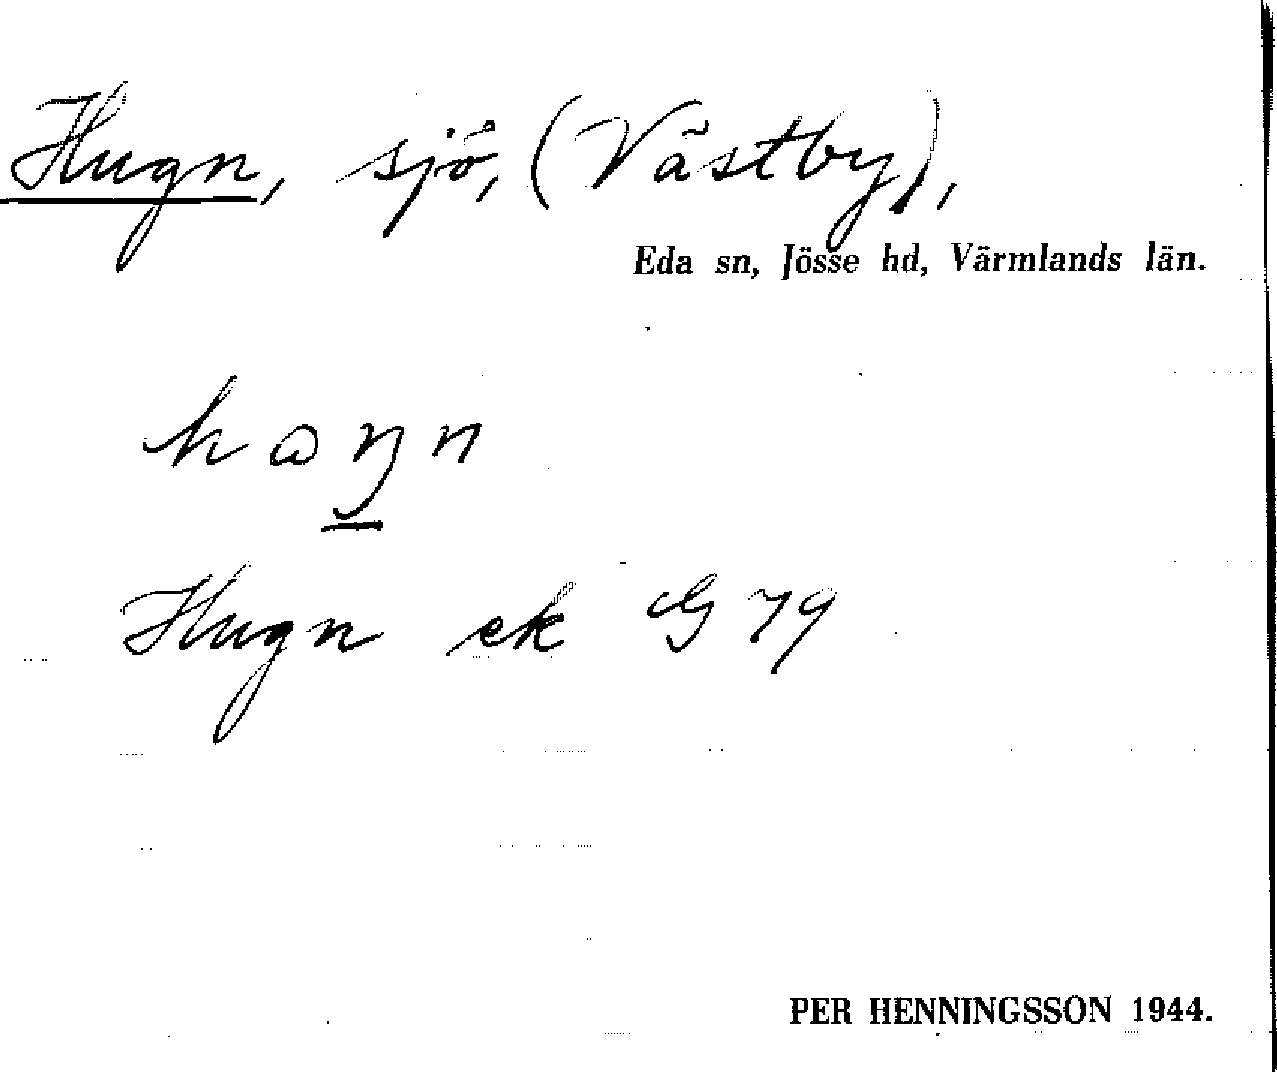 Hugn, sjö, (Västby),
Eda sn, Jösse hd, Värmlands län.
hωŋn
Hugn ek G 79
PER HENNINGSSON 1944.